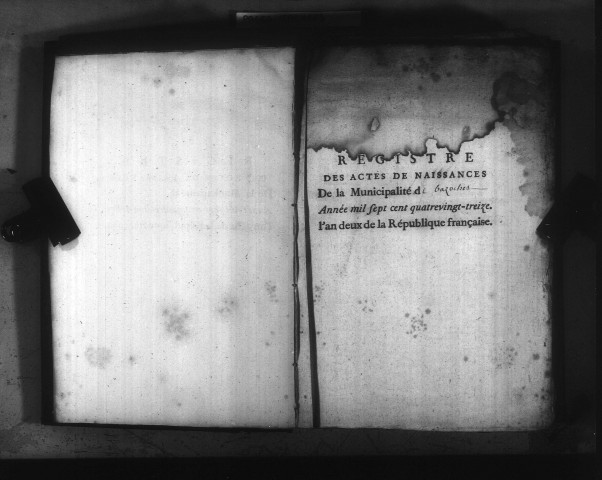 REGISTRE
DES ACTES DE NAISSANCES
De la Municipalité de Bazoches
Année mil sept cent quatrevingt-treize.
l'an deux de la République française.